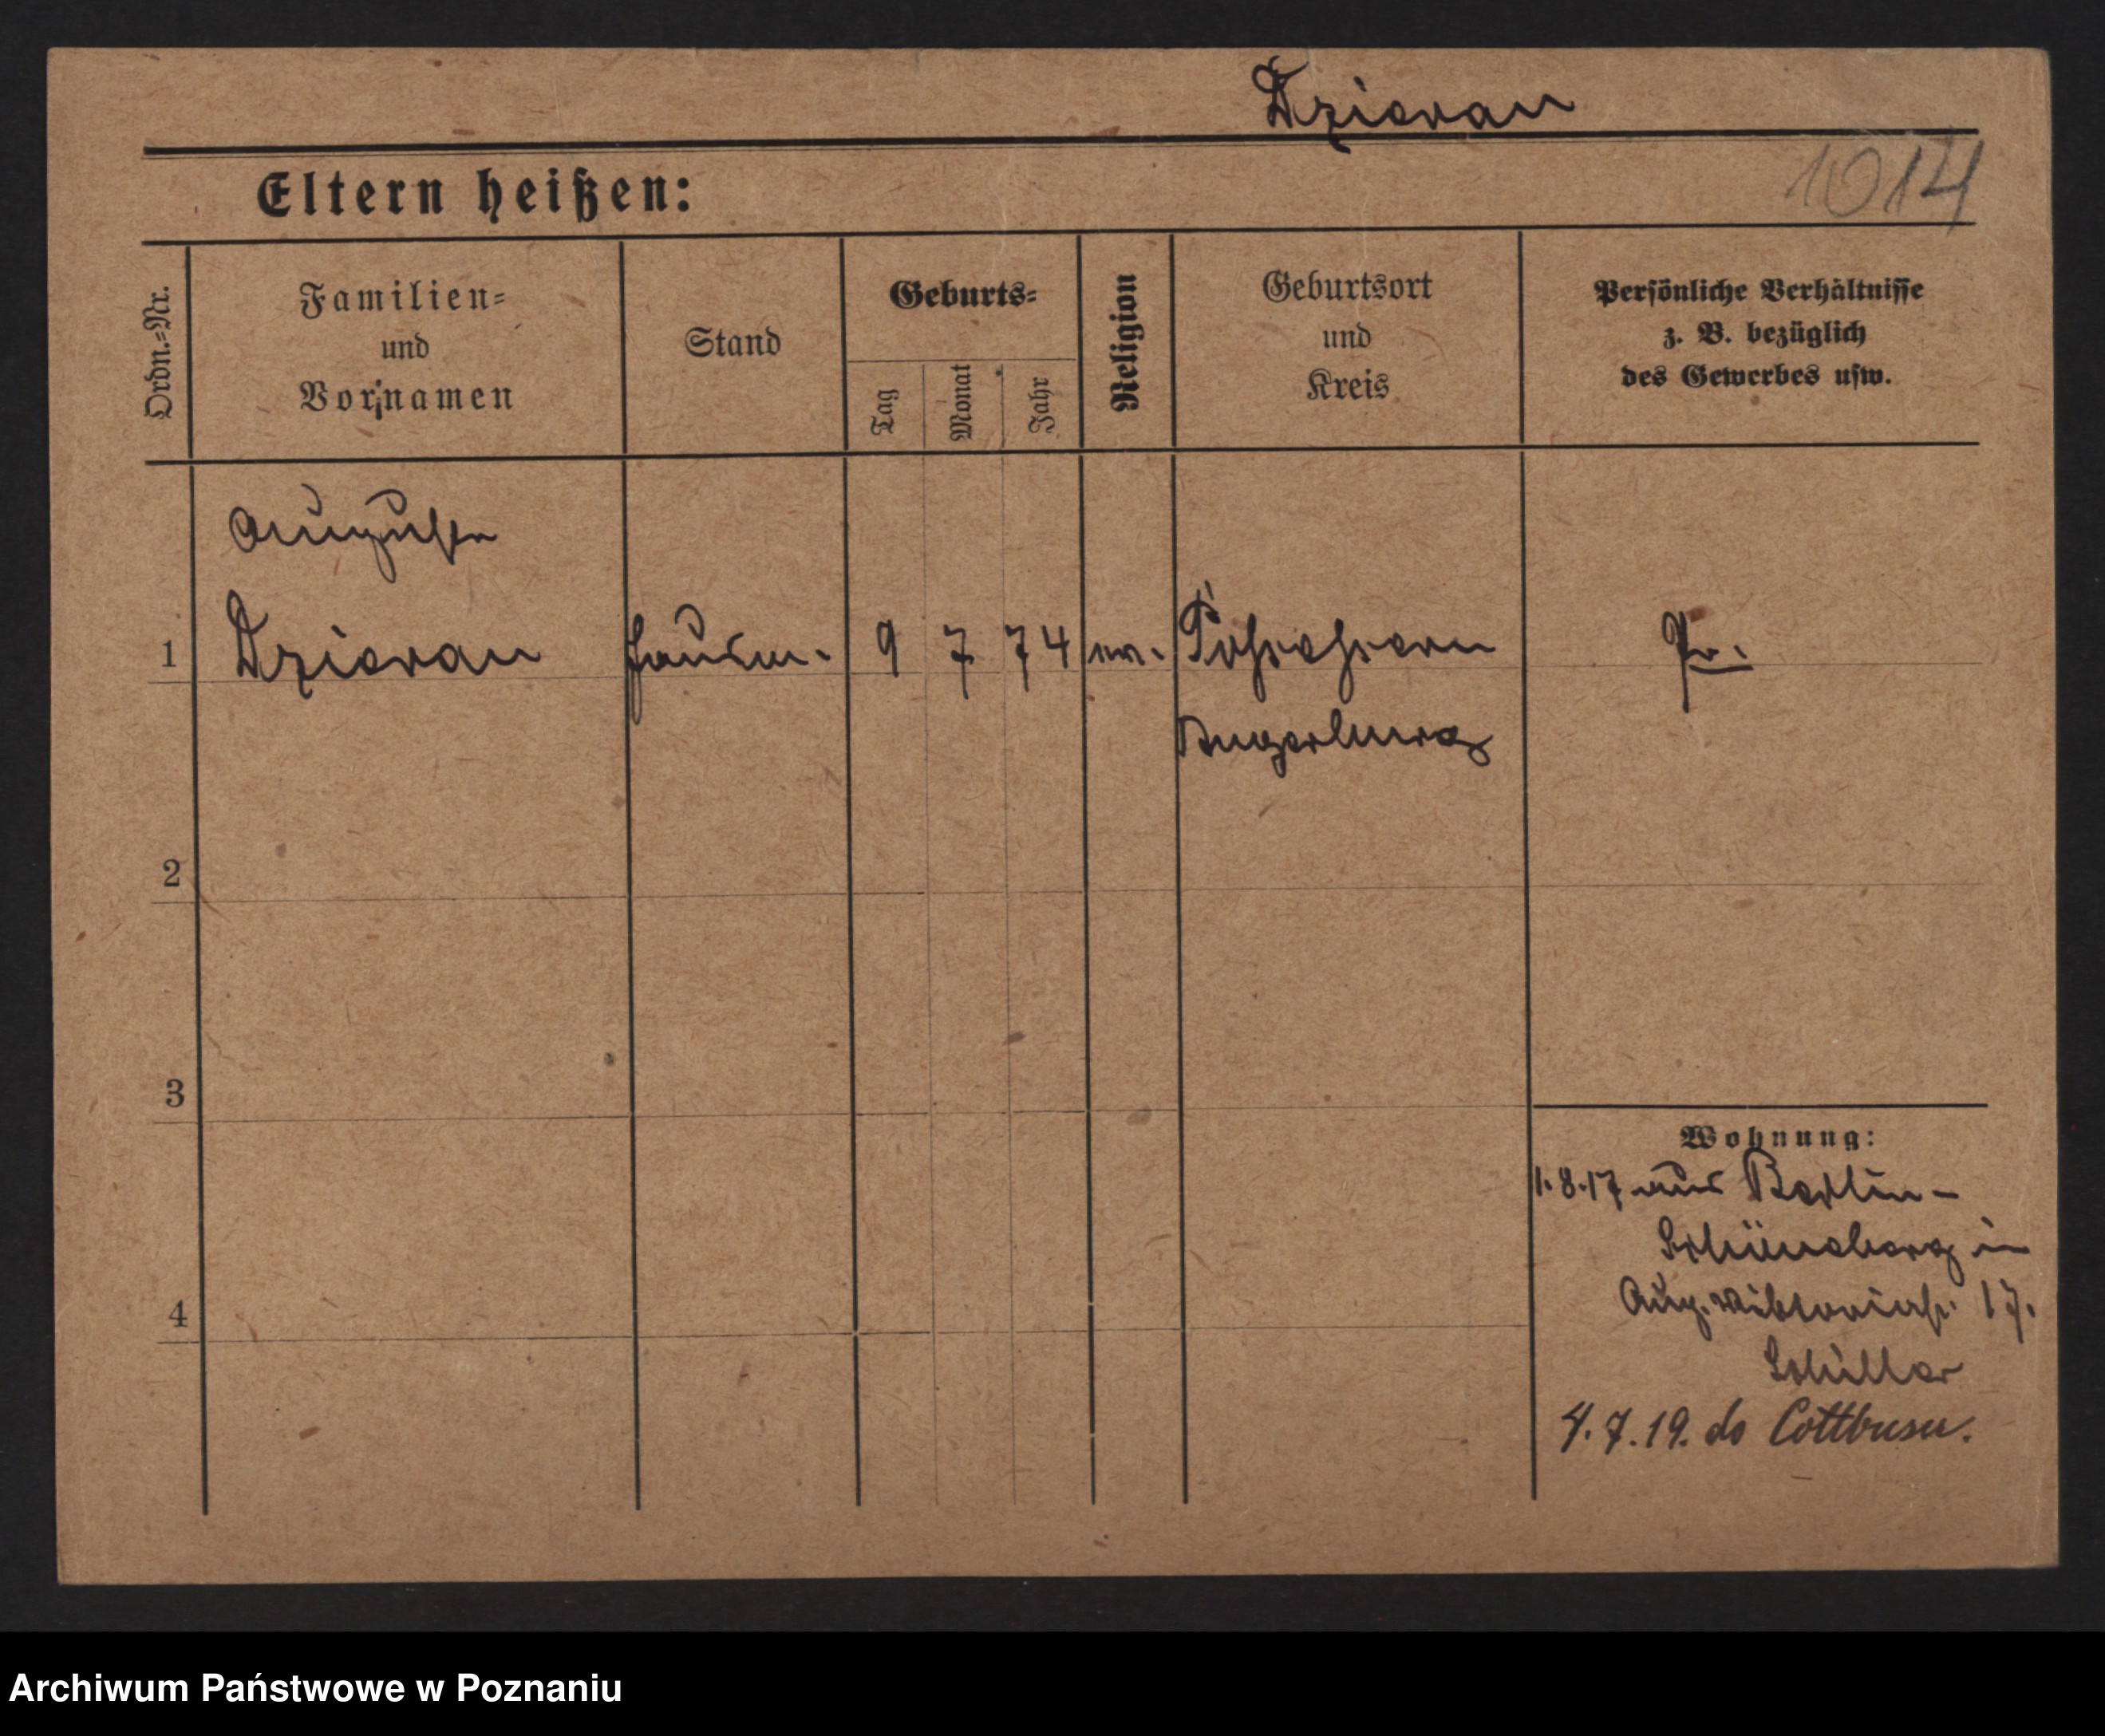 Dzieran
1014
Eltern heißen:
Ordn.=Nr.
Familien=
und
Vornamen
Stand
Geburts=
Tag
Monat
Jahr
Religion
Geburtsort
und
Kreis
Persönliche Verhältnisse
z. B. bezüglich
des Gewerbes usw.
Auguste
1 Dzieran Hausm. 9 7 74 ev. Pr.
Angerburg
2
3
4
Wohnung:
1.8.17 aus Berlin-
Schöneberg in
Aug. Viktoriastr. 17.
Schiller
4.7.19. do Cottbusu.
Archiwum Państwowe w Poznaniu